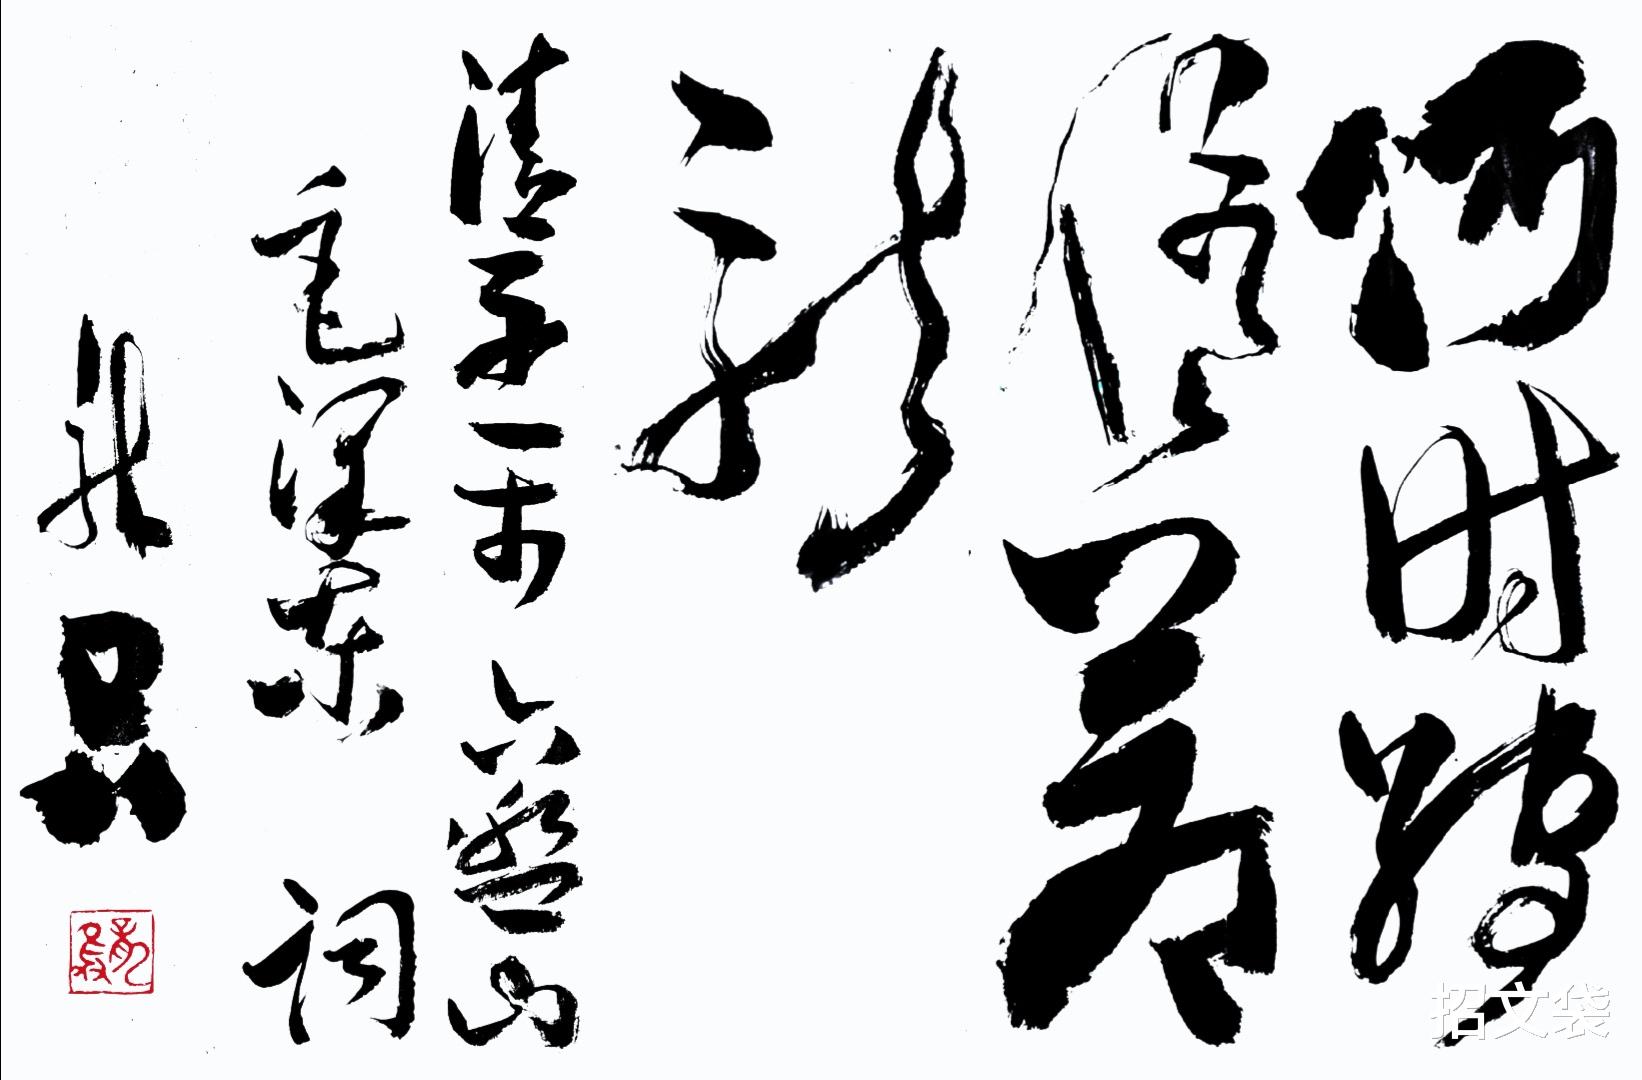 何时缚
住苍
龙
清平乐 六盘山
毛泽东 词
招文袋